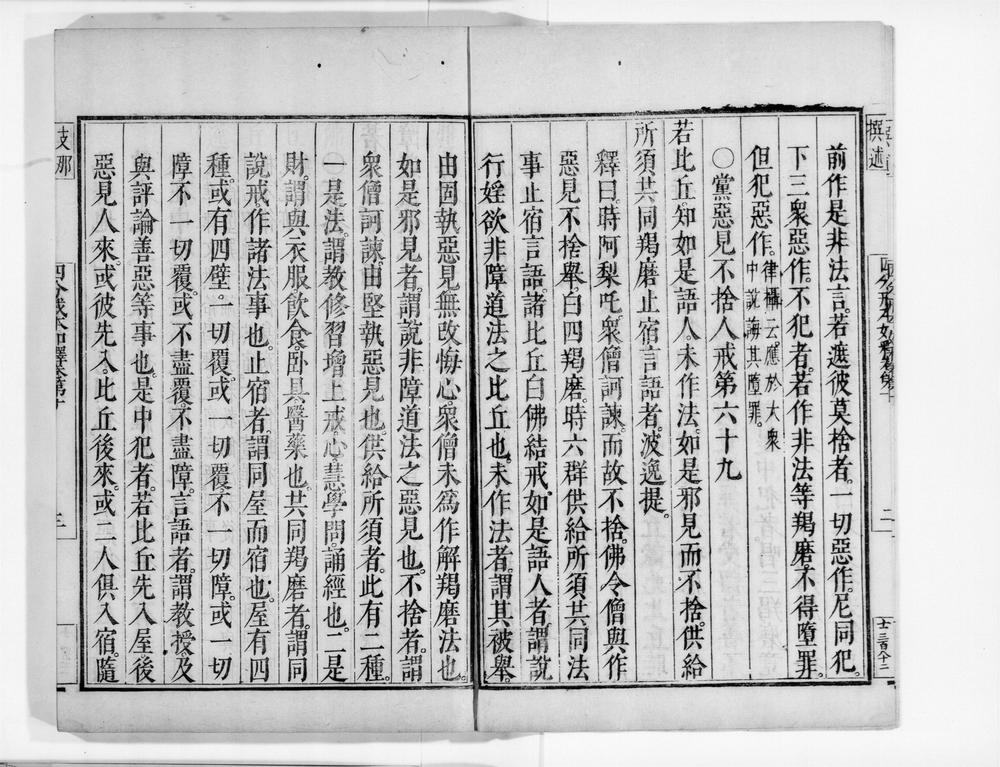 撰述
二
前作是非法言。若遮彼莫捨者。一切惡作。尼同犯。
下三衆惡作。不犯者。若作非法等羯磨。不得墮罪。
但犯惡作。律攝云。應於大衆
中說誨其墮罪。
○黨惡見不捨人戒第六十九
若比丘。知如是語人。未作法。如是邪見而不捨。供給
所須。共同羯磨。止宿言語者。波逸提。
釋曰。時阿梨吒。衆僧訶諫。而故不捨。佛令僧與作
惡見不捨舉。白四羯磨。時六群供給所須。共同法
事。止宿言語。諸比丘白佛結戒。如是語人者。謂說
行婬欲非障道法之比丘也。未作法者。謂其被舉。
由固執惡見。無改悔心。衆僧未爲作解羯磨法也。
如是邪見者。謂說非障道法之惡見也。不捨者。謂
衆僧訶諫。由堅執惡見也。供給所須者。此有二種。
一是法。謂教修習增上戒心慧學問。誦經也。二是
財。謂與衣服飲食。臥具醫藥也。共同羯磨者。謂同
說戒作諸法事也。止宿者。謂同屋而宿也。屋有四
種。或有四壁。一切覆。或一切覆。不一切障。或一切
障。不一切覆。或不盡覆。不盡障。言語者。謂教授。及
與評論善惡等事也。是中犯者。若比丘先入屋。後
惡見人來。或彼先入。比丘後來。或二人俱入宿。隨
支那
四分戒本如釋卷第十
三